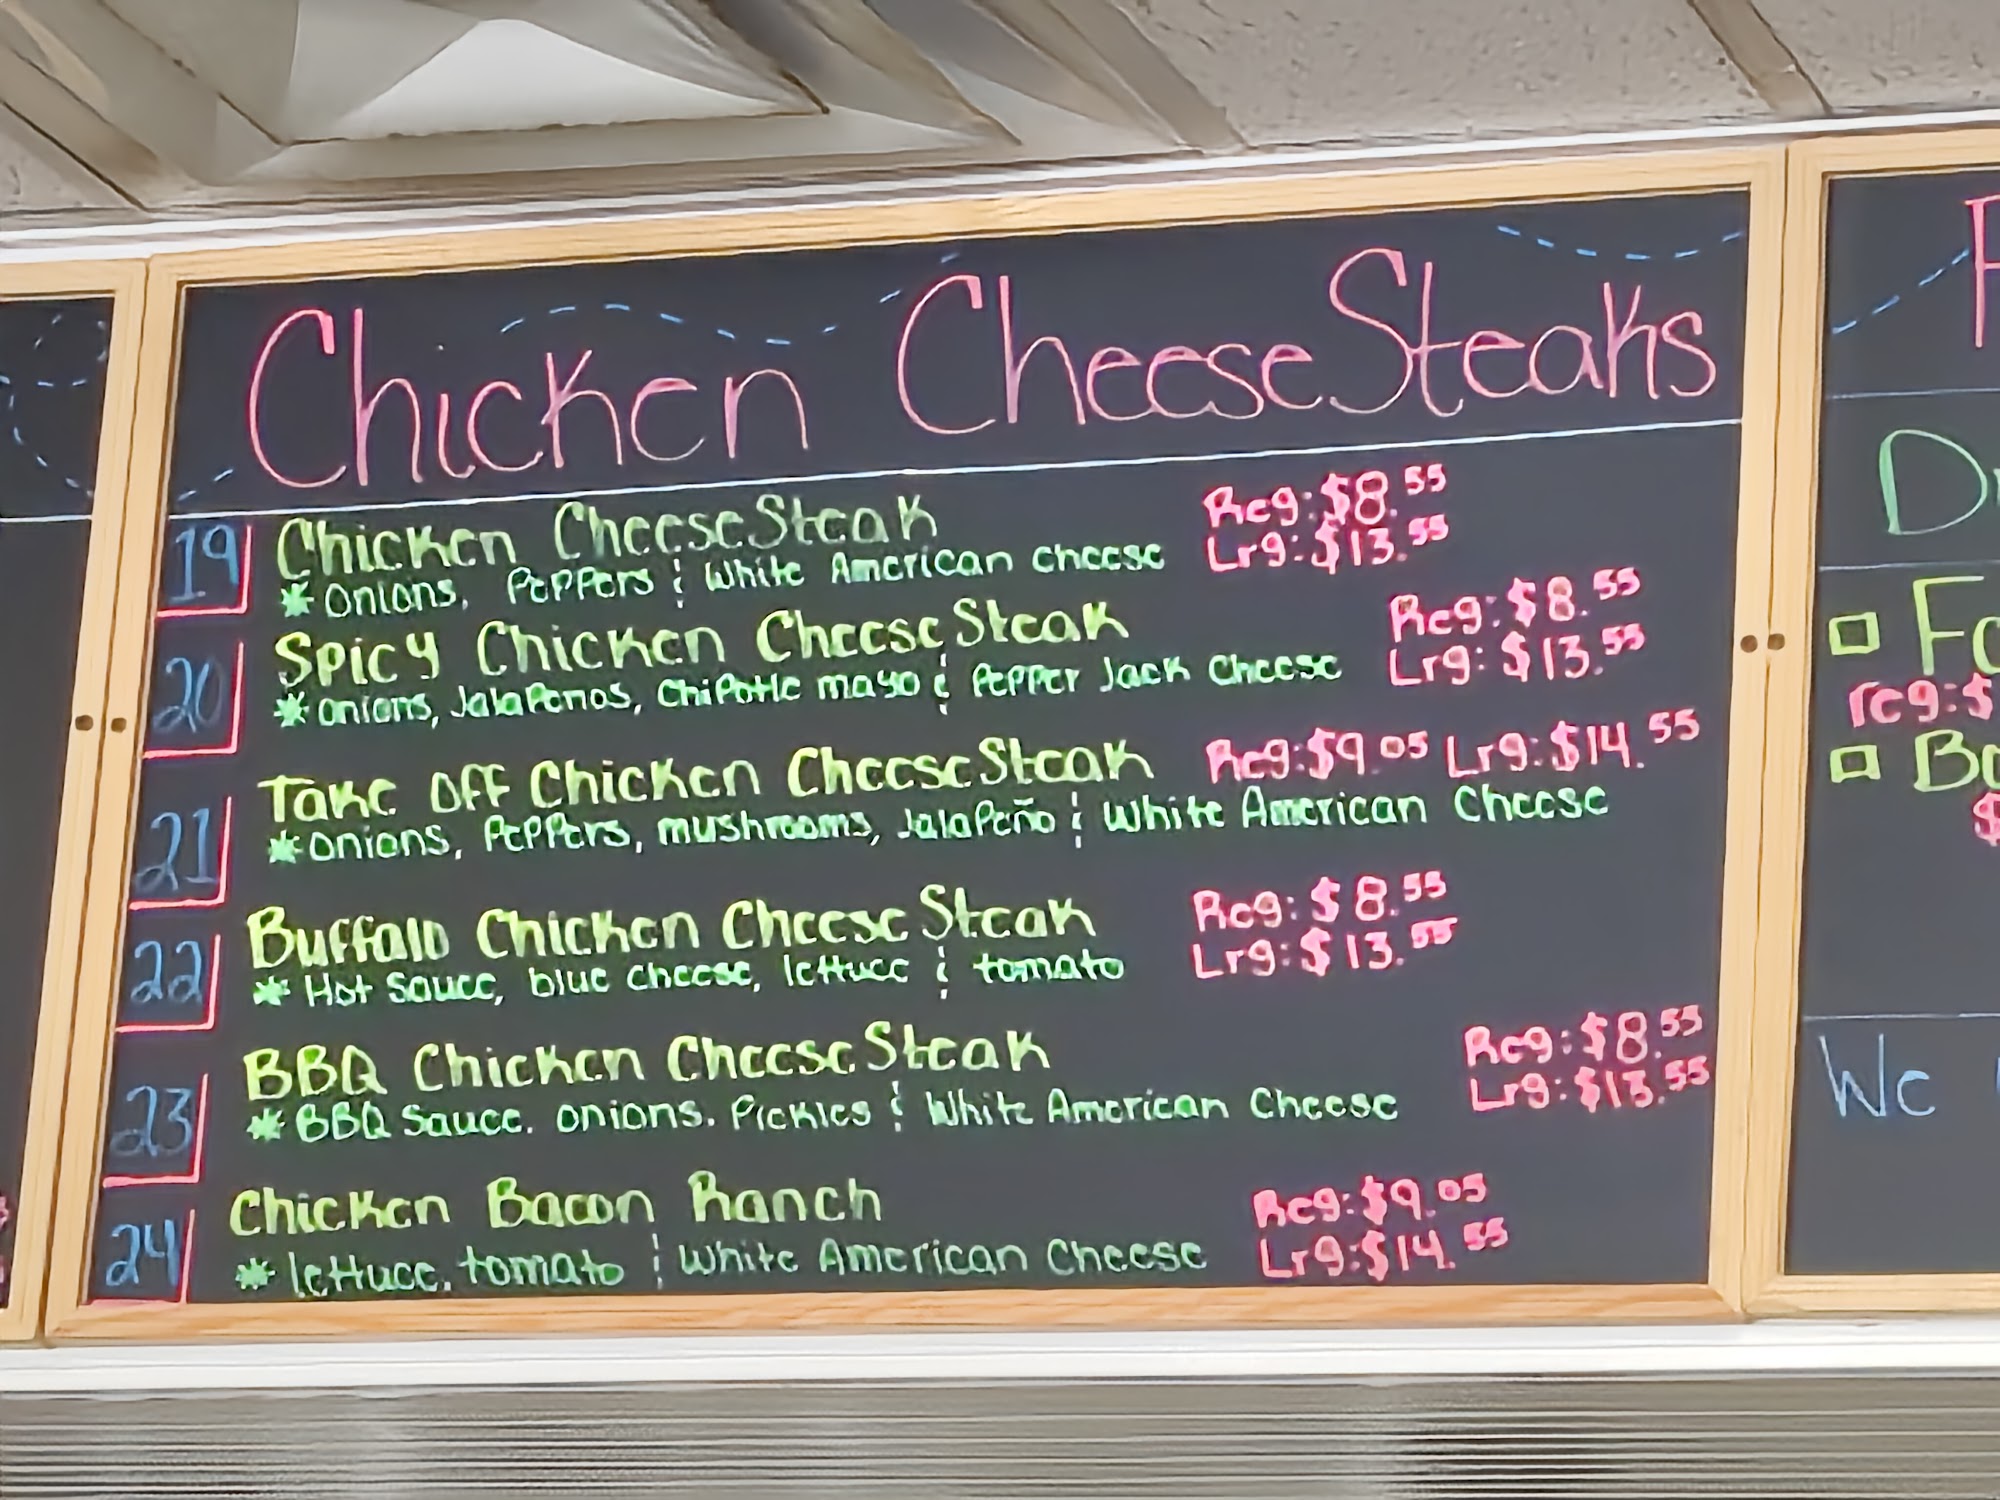 Chicken CheeseSteaks
19 Chicken CheeseSteak Reg: $8.55
* Onions, Peppers & White American cheese Lrg: $13.55
20 Spicy Chicken CheeseSteak Reg: $8.55
* onions, Jalapenos, Chipotle mayo & Pepper Jack Cheese Lrg: $13.55
21 Take Off Chicken CheeseSteak Reg: $9.05 Lrg: $14.55
* onions, Peppers, mushrooms, Jalapeño & White American Cheese
22 Buffalo Chicken Cheese Steak Reg: $8.55
* Hot Sauce, blue cheese, lettuce & tomato Lrg: $13.55
23 BBQ Chicken CheeseSteak Reg: $8.55
* BBQ Sauce, onions, Pickles & White American Cheese Lrg: $13.55
24 Chicken Bacon Ranch Reg: $9.05
* lettuce, tomato & White American Cheese Lrg: $14.55
reg: $
We